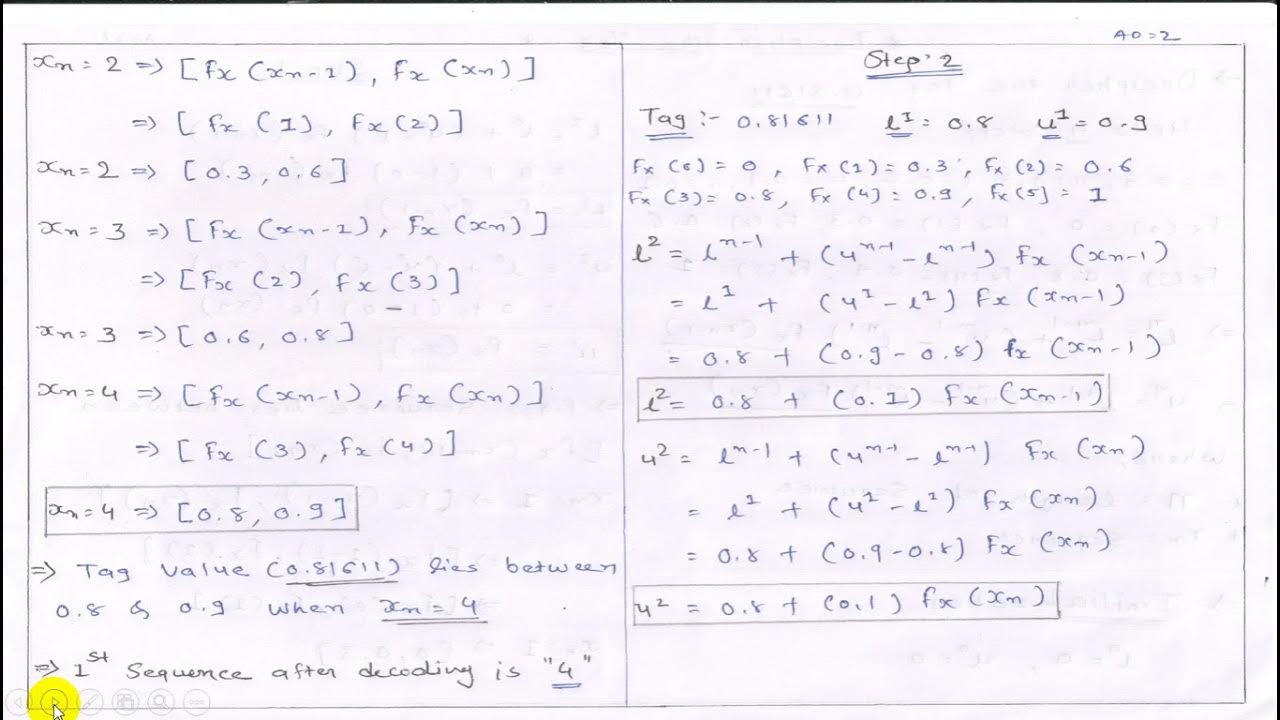 AD=2
xn = 2 => [ Fx (xn-1) , Fx (xn) ]
=> [ Fx (1) , Fx (2) ]
xn = 2 => [ 0.3 , 0.6 ]
xn = 3 => [ Fx (xn-1) , Fx (xn) ]
=> [ Fx (2) , Fx (3) ]
xn = 3 => [ 0.6 , 0.8 ]
xn = 4 => [ Fx (xn-1) , Fx (xn) ]
=> [ Fx (3) , Fx (4) ]
xn = 4 => [ 0.8 , 0.9 ]
=> Tag Value (0.81611) lies between
0.8 & 0.9 when xn = 4
=> 1st Sequence after decoding is "4"
Step:2
Tag :- 0.81611 l¹ = 0.8 u¹ = 0.9
Fx (0) = 0 , Fx (1) = 0.3 , Fx (2) = 0.6
Fx (3) = 0.8 , Fx (4) = 0.9 , Fx (5) = 1
l² = lⁿ⁻¹ + (uⁿ⁻¹ - lⁿ⁻¹) Fx (xn-1)
= l¹ + (u¹ - l¹) Fx (xn-1)
= 0.8 + (0.9 - 0.8) Fx (xn-1)
l² = 0.8 + (0.1) Fx (xn-1)
u² = lⁿ⁻¹ + (uⁿ⁻¹ - lⁿ⁻¹) Fx (xn)
= l¹ + (u¹ - l¹) Fx (xn)
= 0.8 + (0.9-0.8) Fx (xn)
u² = 0.8 + (0.1) Fx (xn)